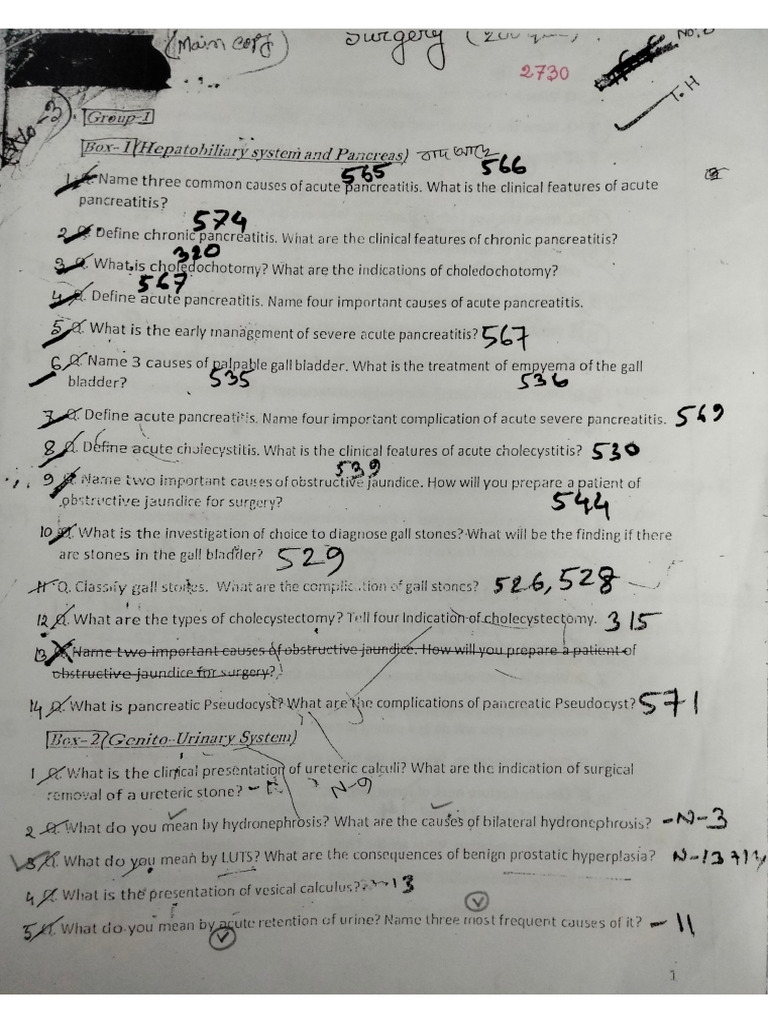 (Main copy) Surgery
2730
T.H
Group-I
Box-1(Hepatobiliary system and Pancreas)
565 566
1 Q. Name three common causes of acute pancreatitis. What is the clinical features of acute
pancreatitis?
574
2 Q. Define chronic pancreatitis. What are the clinical features of chronic pancreatitis?
320
3 Q. What is choledochotomy? What are the indications of choledochotomy?
567
4 Q. Define acute pancreatitis. Name four important causes of acute pancreatitis.
5 Q. What is the early management of severe acute pancreatitis? 567
6 Q. Name 3 causes of palpable gall bladder. What is the treatment of empyema of the gall
bladder? 535 536
7 Q. Define acute pancreatitis. Name four important complication of acute severe pancreatitis. 569
8 Q. Define acute cholecystitis. What is the clinical features of acute cholecystitis? 530
539
9 Q. Name two important causes of obstructive jaundice. How will you prepare a patient of
obstructive jaundice for surgery? 544
10 Q. What is the investigation of choice to diagnose gall stones? What will be the finding if there
are stones in the gall bladder? 529
11 Q. Classify gall stones. What are the complication of gall stones? 526, 528
12 Q. What are the types of cholecystectomy? Tell four Indication of cholecystectomy. 315
13 Q. Name two important causes of obstructive jaundice. How will you prepare a patient of
obstructive jaundice for surgery?
14 Q. What is pancreatic Pseudocyst? What are the complications of pancreatic Pseudocyst? 571
Box-2(Genito-Urinary System)
1 Q. What is the clinical presentation of ureteric calculi? What are the indication of surgical
removal of a ureteric stone? N-9
2 Q. What do you mean by hydronephrosis? What are the causes of bilateral hydronephrosis? -N-3
3 Q. What do you mean by LUTS? What are the consequences of benign prostatic hyperplasia?
4 Q. What is the presentation of vesical calculus? 13
5 Q. What do you mean by acute retention of urine? Name three most frequent causes of it? - 11
1